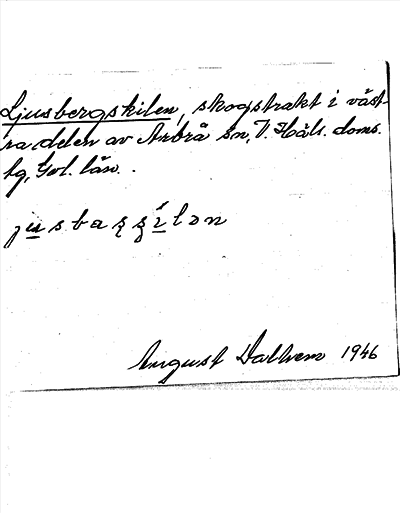 Ljusbergskilen, skogstrakt i väst-
ra delen av Arbrå sn, V. Häls. doms.
tg, Gvl. län.
jusbaʂʂílən
August Dalhem 1946